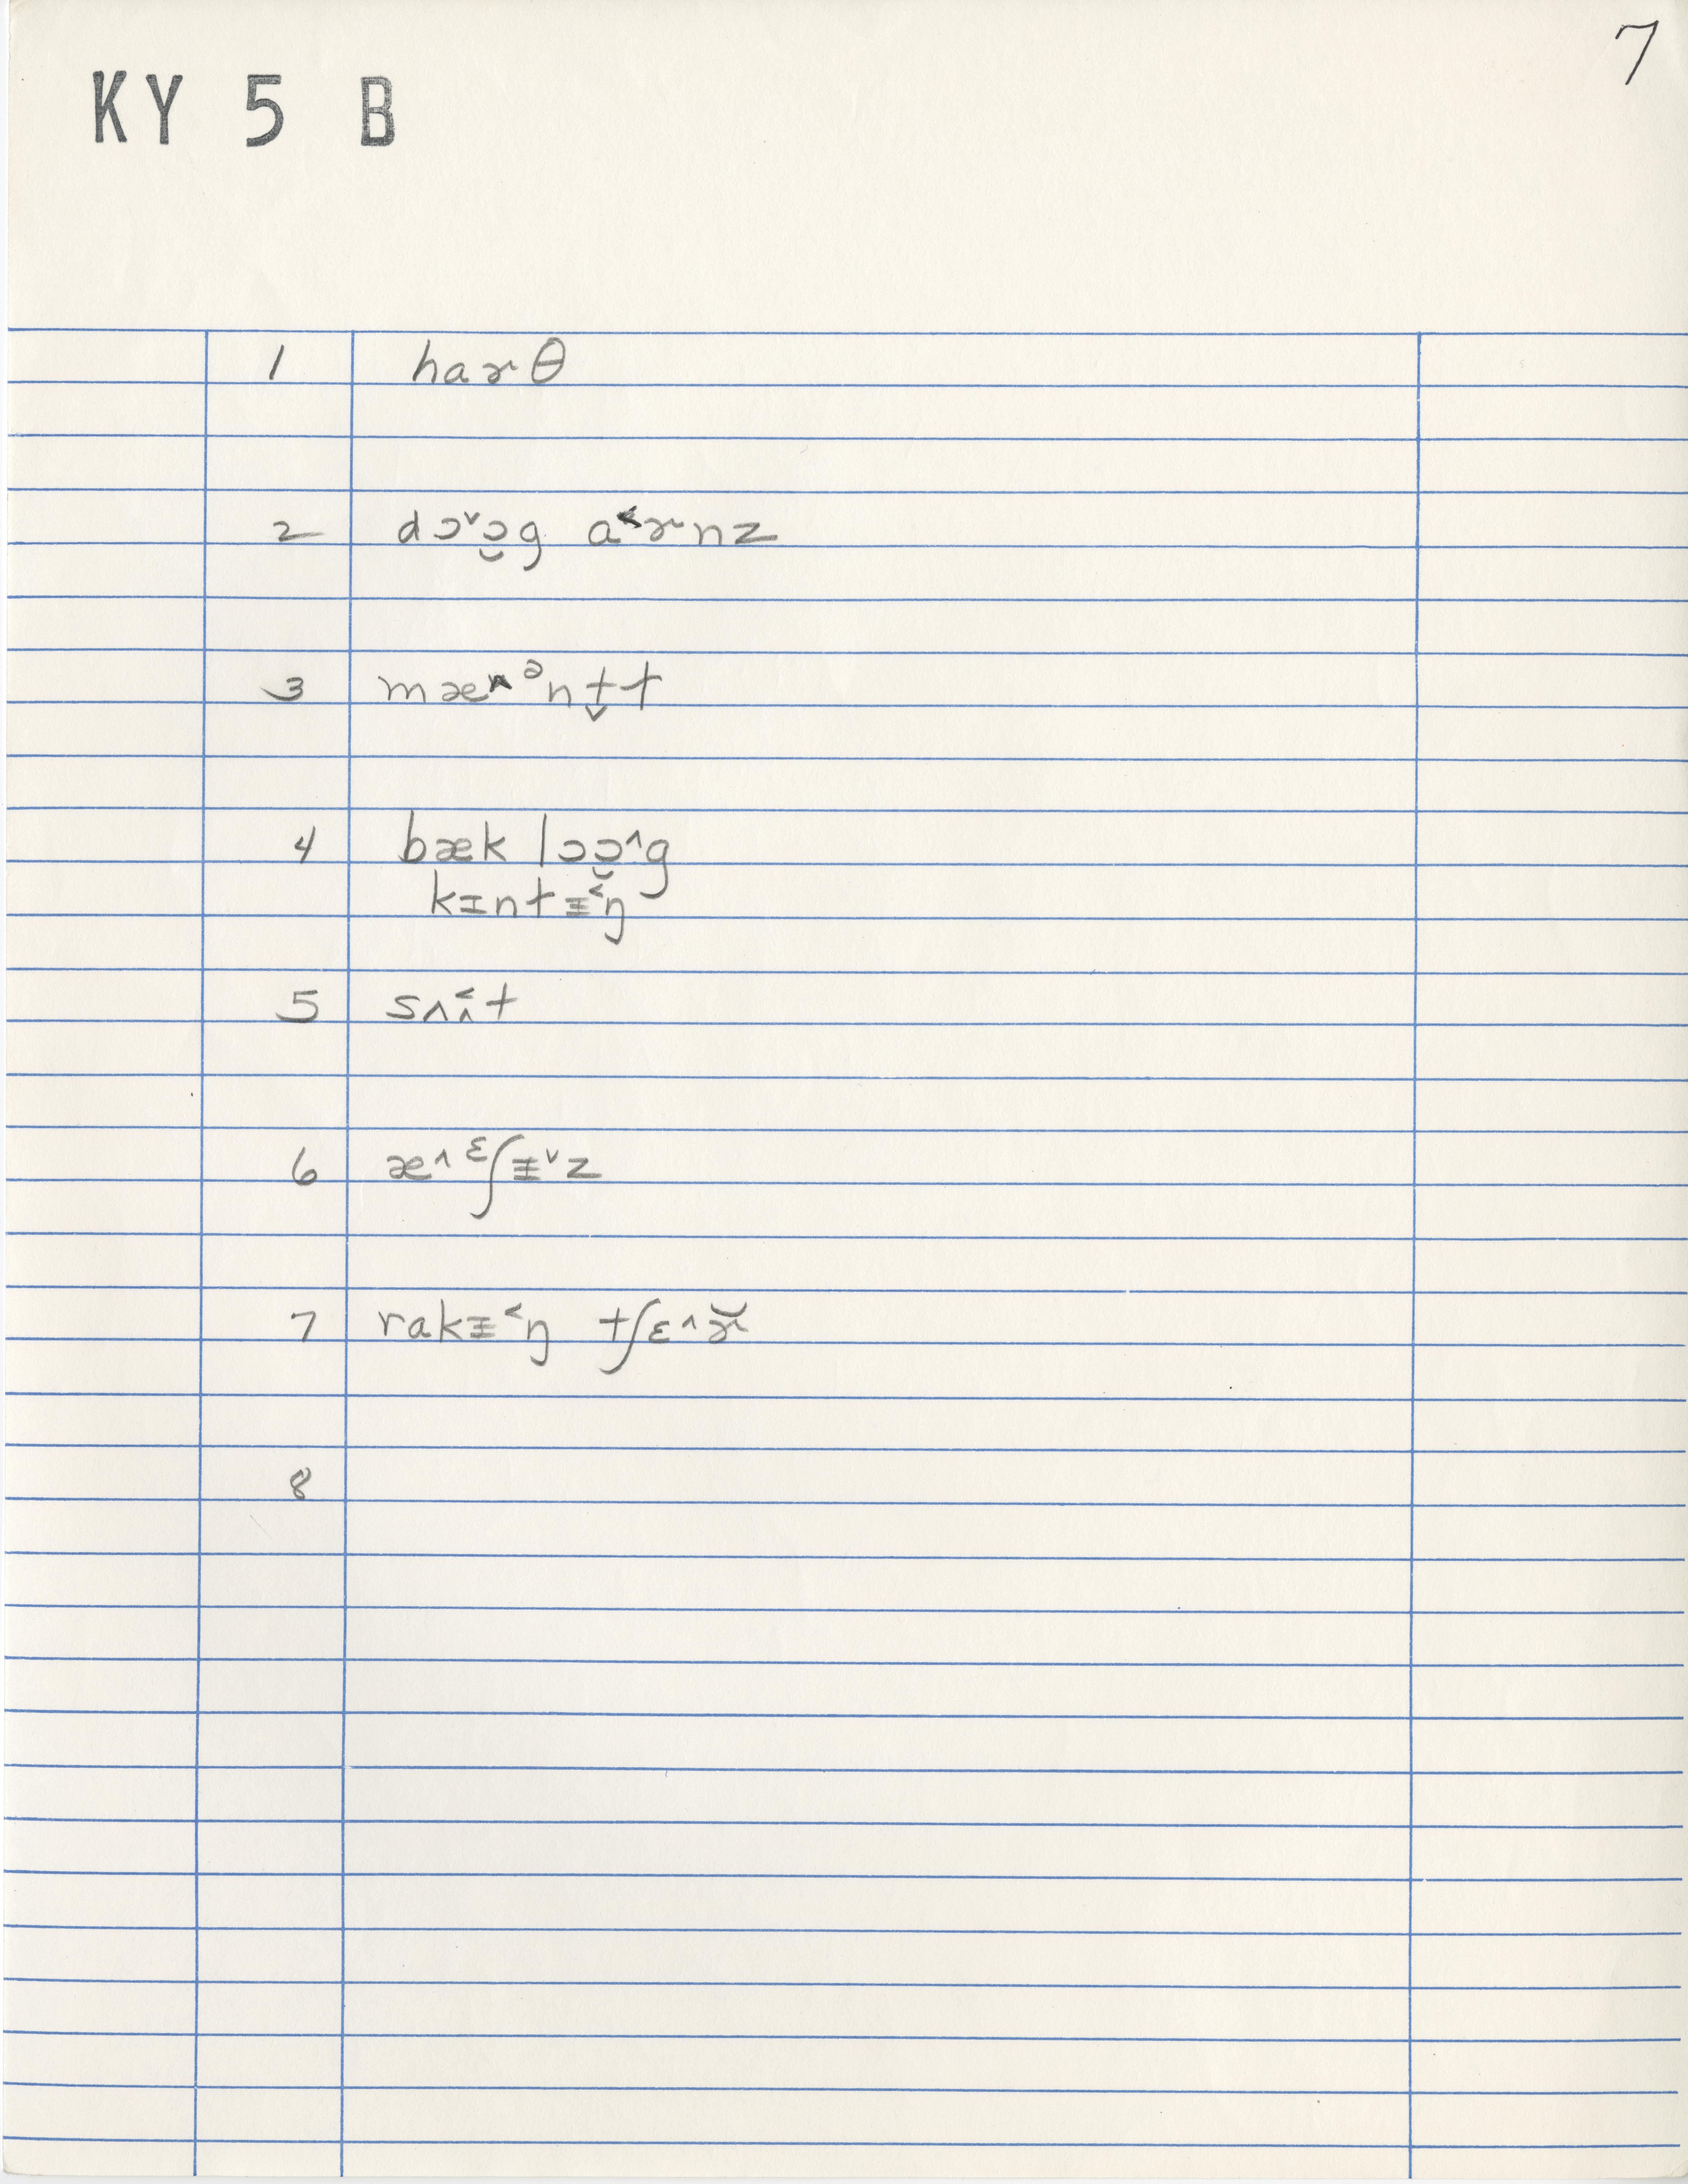 7
KY 5 B
1 haɚθ
2 dɔ˅ɔ̯g a˂ɚnz
3 mæ˄ᵊnt̬t
4 bæk lɔɔ̯˄g
kɪntᵻ˂ŋ
5 sʌʌ̯˂t
6 æ˄ᵋʃᵻ˅z
7 rakᵻ˂ŋ tʃɛ˄ɚ̆
8